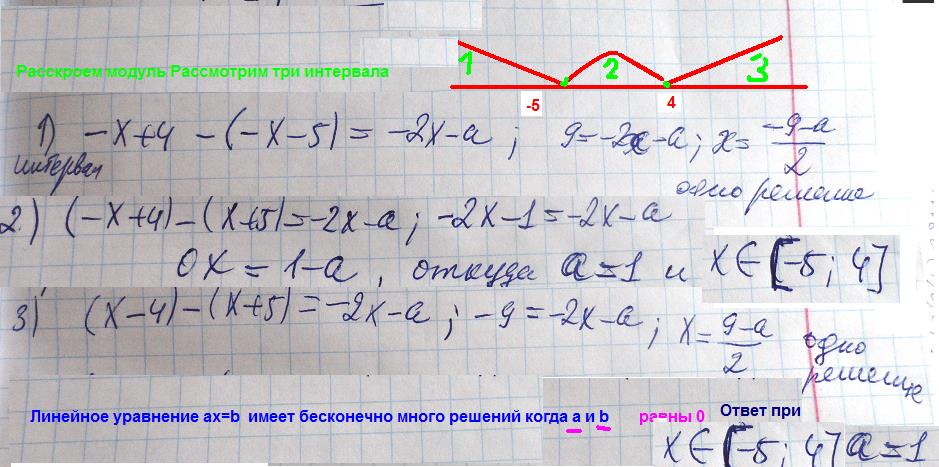 Расскроем модуль Рассмотрим три интервала
1 2 3
-5 4
1) -x+4 -(-x-5) = -2x-a ; 9=-2x-a ; x= \frac{-9-a}{2}
интервал
одно решение
2) (-x+4)-(x+5)=-2x-a ; -2x-1=-2x-a
0x = 1-a , откуда a=1 и x∈[-5; 4]
3) (x-4)-(x+5) = -2x-a ; -9 = -2x-a ; x= \frac{9-a}{2} одно
решение
Линейное уравнение ax=b имеет бесконечно много решений когда a и b равны 0 Ответ при
x∈[-5; 4] a=1